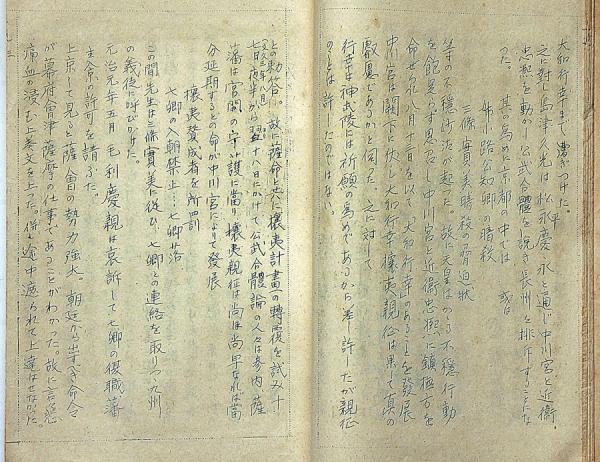 大和行幸まで漕ぎつけた。
之に対し島津久光は松永慶永と通じ中川宮と近衛
忠熙を動かし公武合體を説き長州を排斥することにな
った。 其の為めに京都の中では 或は
姉小路公知卿の暗殺
三條實美暗殺の脅迫状
等の不穏沙汰が起った。故に天皇はかゝる不穏行動
を飽足らず思召し中川宮と近衛忠熙に鎮撫方を
命ぜられ八月十三日を以て「大和行幸」のあることを發展
中川宮は闕下に伏し大和行幸攘夷親征は果て真の
叡慮であるかと伺った。之に対して
行幸は神武陵には祈願の為めであるから差許したが親征
のことは許したのではない。
との勅答。故に薩会と共に攘夷計畫の轉覆を試み十
七日夜半から翌十八日にかけて公武合體論の人々は参内 薩
(文久三年八月)
藩は宮闕の守護に當り攘夷親征は尚ほ尚早なれば當
分延期するとの命が中川宮によりて發展
攘夷賛成者を所罰
七卿の入朝禁止…七卿落
この間先生は三條實美に從ひ 七卿との連絡を取りつゝ九州
の義徒に呼びかけた。
元治元年五月 毛利慶親は哀訴して七卿の復職藩
主父子の許可を請ふた。
上京して見ると薩會の勢力強大。朝廷から出すべき命令
が幕府會津薩摩の仕事であることがわかった。故に言悲
痛血の浸む上表文を上った。併し途中遮られて上達はせなかった。